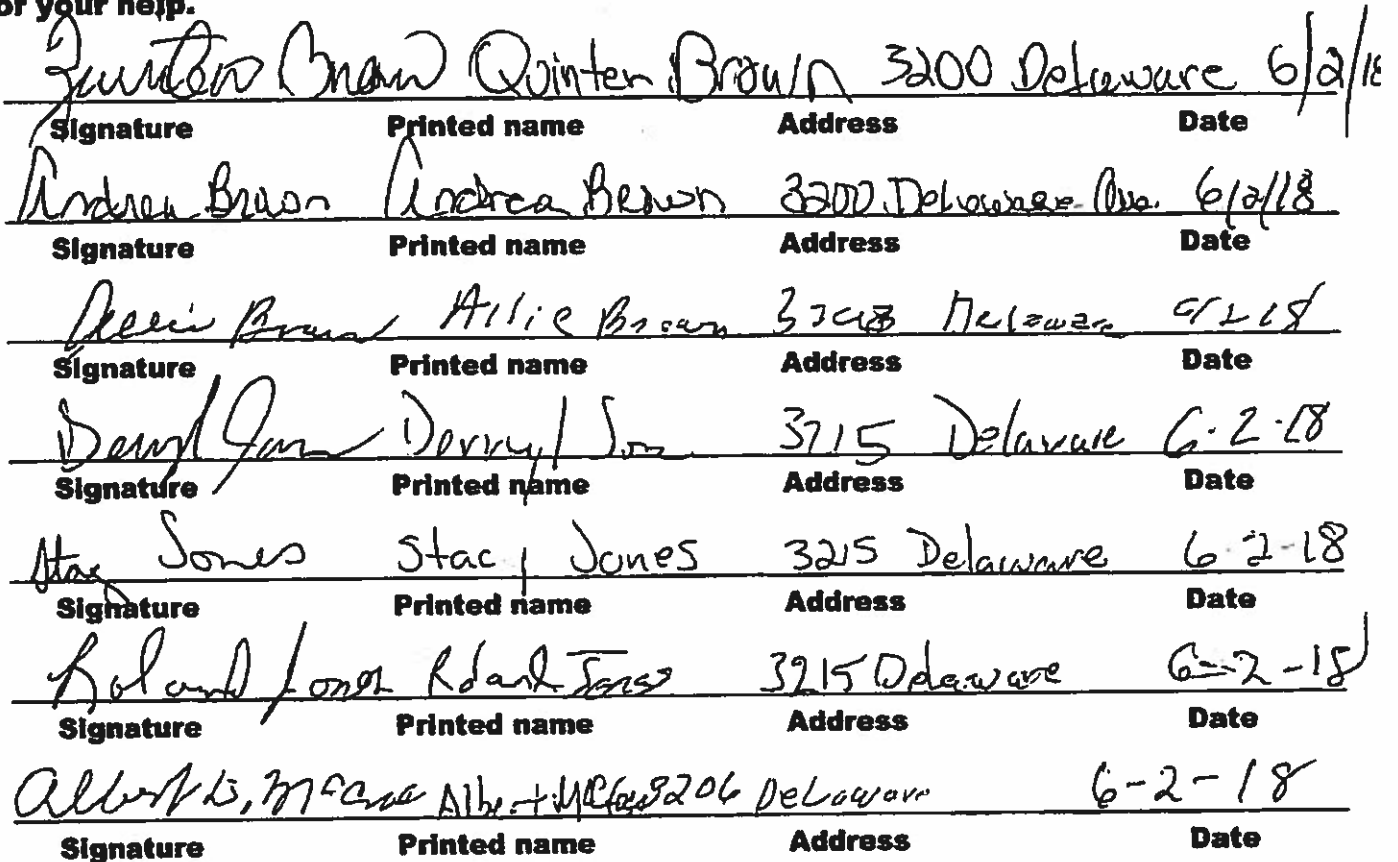 or your help.
Quinten Brown Quinten Brown 3200 Delaware 6/2/18
Signature Printed name Address Date
Andrea Brown Andrea Brown 3200 Delaware Ave. 6/2/18
Signature Printed name Address Date
Allie Brown Allie Brown Delaware
Signature Printed name Address Date
Derryl Derryl 3715 Delaware 6-2-18
Signature Printed name Address Date
Stacy Jones Stacy Jones 3215 Delaware 6-2-18
Signature Printed name Address Date
Roland Jones Roland Jones 3215 Delaware 6-2-18
Signature Printed name Address Date
Albert Albert 3206 Delaware 6-2-18
Signature Printed name Address Date